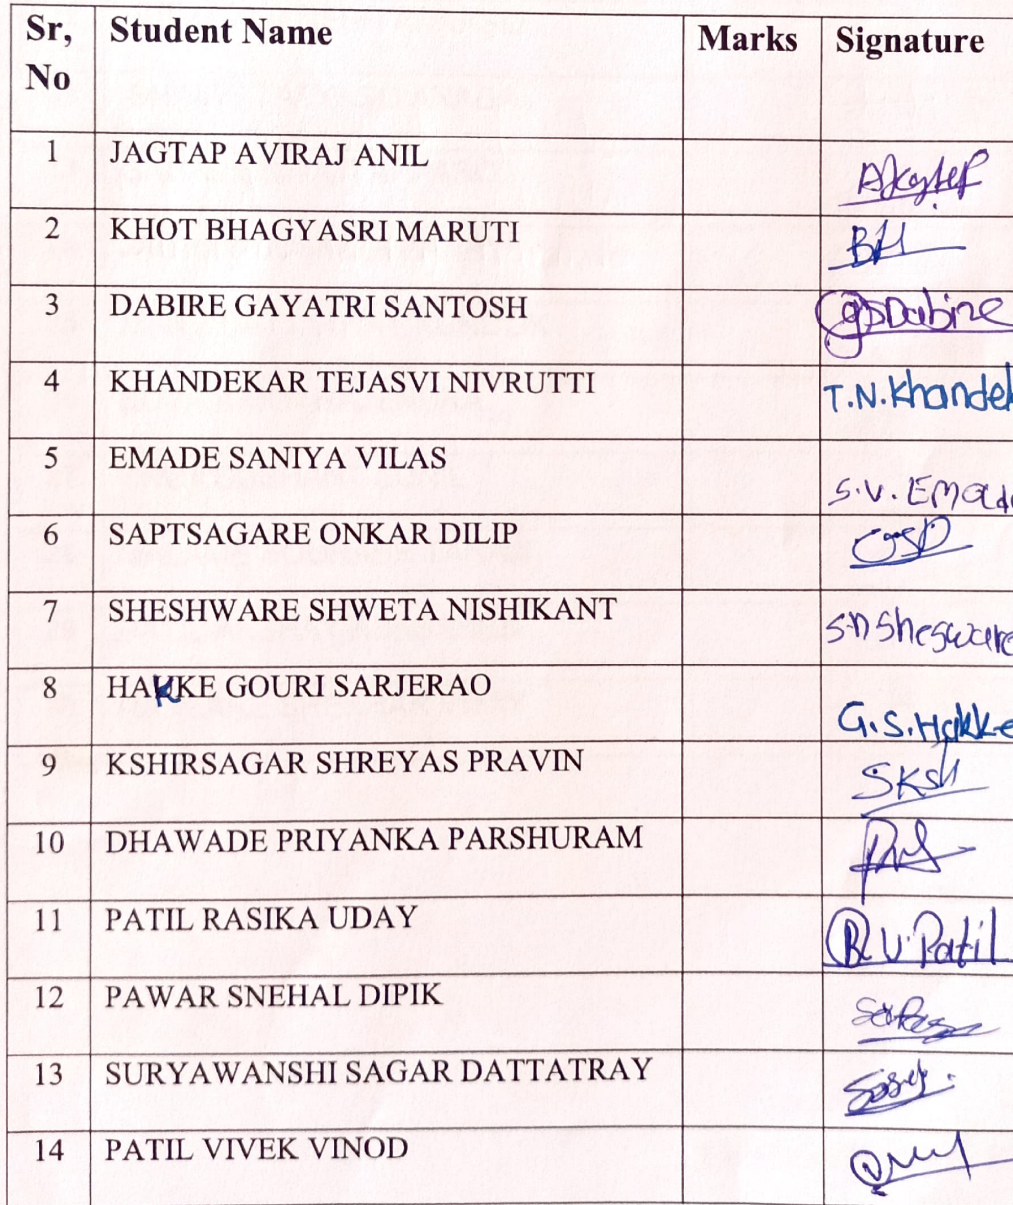 Sr, No Student Name Marks Signature
1 JAGTAP AVIRAJ ANIL
2 KHOT BHAGYASRI MARUTI
3 DABIRE GAYATRI SANTOSH GSDabire
4 KHANDEKAR TEJASVI NIVRUTTI T.N.Khandek
5 EMADE SANIYA VILAS S.V. EMade
6 SAPTSAGARE ONKAR DILIP
7 SHESHWARE SHWETA NISHIKANT S.n Sheswere
8 HAKKE GOURI SARJERAO G.S.Hakke
9 KSHIRSAGAR SHREYAS PRAVIN SKSH
10 DHAWADE PRIYANKA PARSHURAM
11 PATIL RASIKA UDAY R U Patil
12 PAWAR SNEHAL DIPIK
13 SURYAWANSHI SAGAR DATTATRAY
14 PATIL VIVEK VINOD